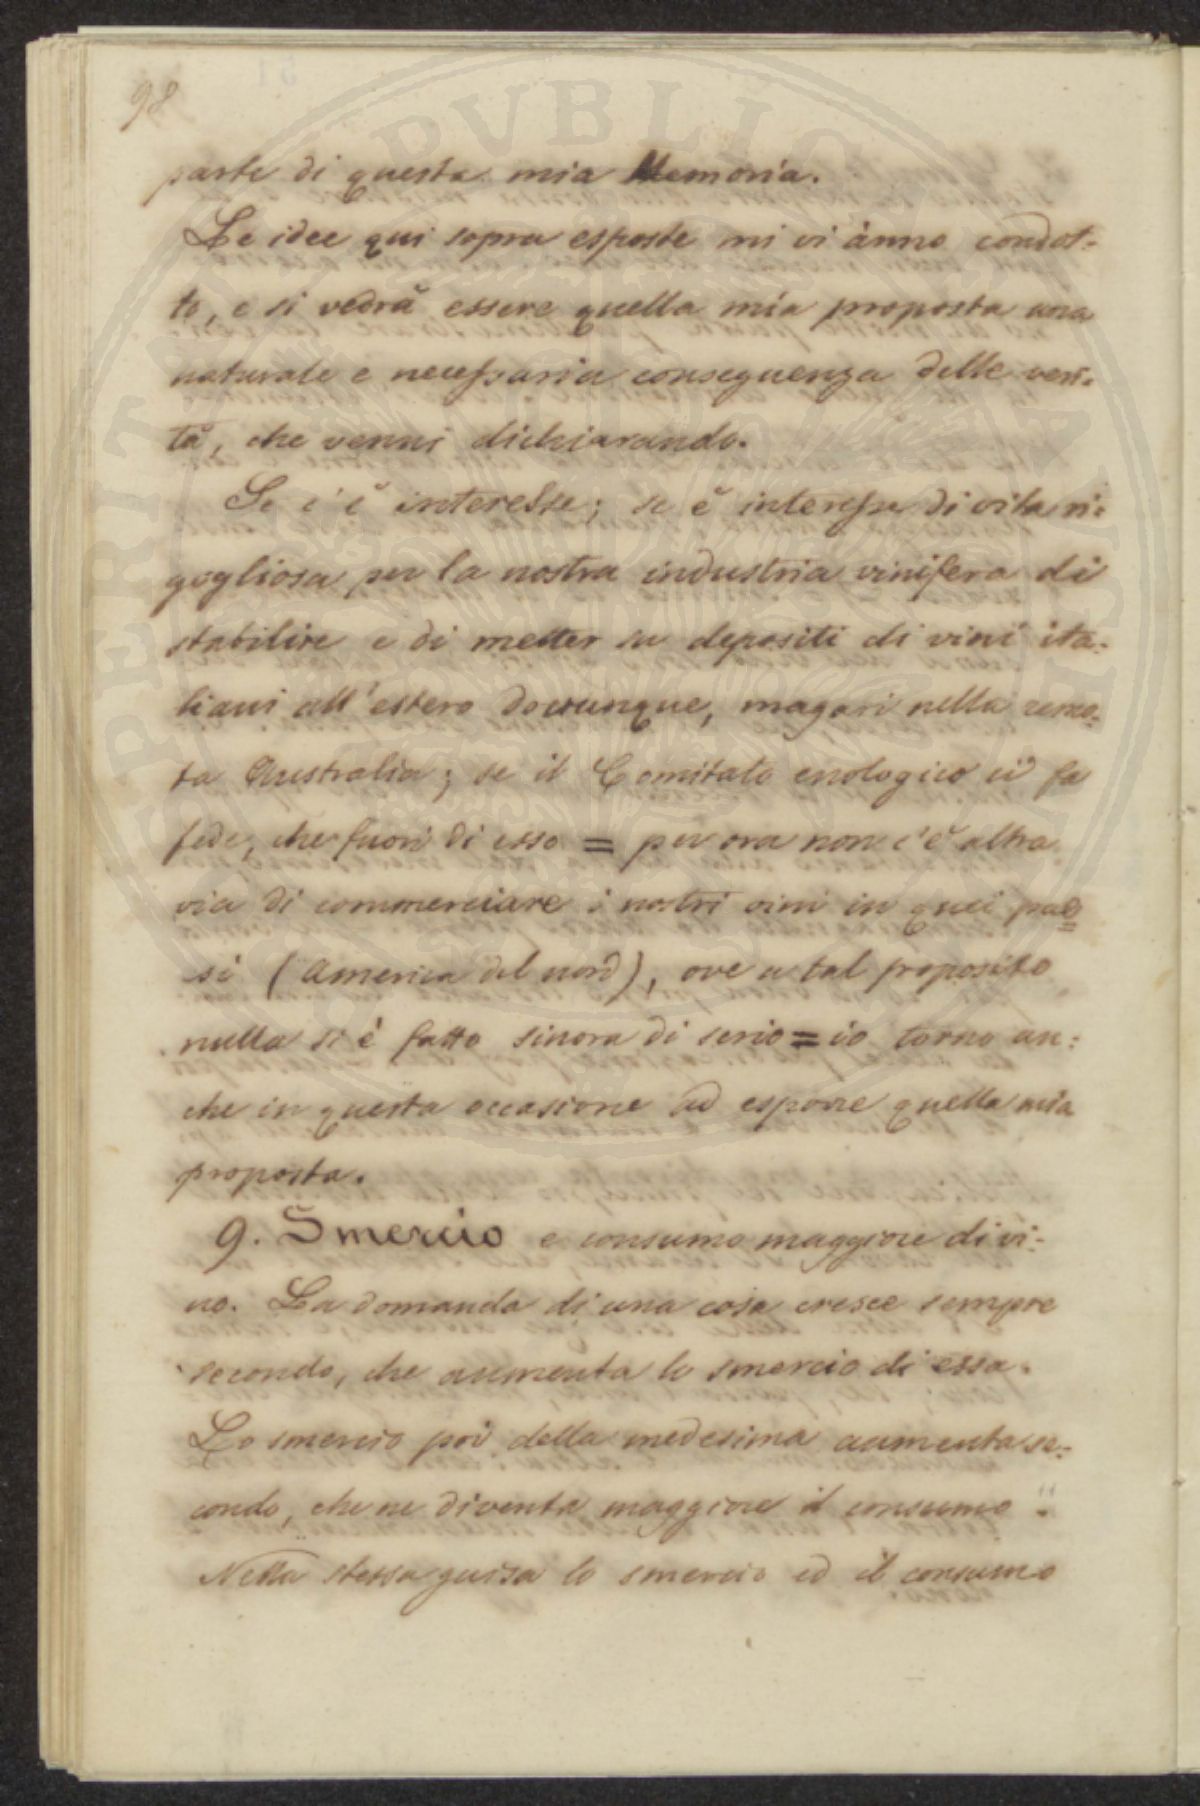 98
parte di questa mia Memoria.
Le idee qui sopra esposte mi vi ànno condot-
to, e si vedrà essere quella mia proposta una
naturale e necessaria conseguenza delle veri-
tà, che venni dichiarando.
Se c'è interesse; se è interesse di vita ri-
gogliosa per la nostra industria vinifera di
stabilire e di metter su depositi di vini ita-
liani all'estero dovunque, magari nella remo-
ta Australia; se il Comitato enologico ci fa
fede, che fuori di esso = per ora non c'è altra
via di commerciare i nostri vini in quei pae=
si (America del nord), ove a tal proposito
nulla si è fatto sinora di serio = io torno an-
che in questa occasione ad esporre quella mia
proposta.
9. Smercio e consumo maggiore di vi-
no. La domanda di una cosa cresce sempre
secondo, che aumenta lo smercio di essa.
Lo smercio poi della medesima aumenta se-
condo, che ne diventa maggiore il consumo.
Nella stessa guisa lo smercio ed il consumo